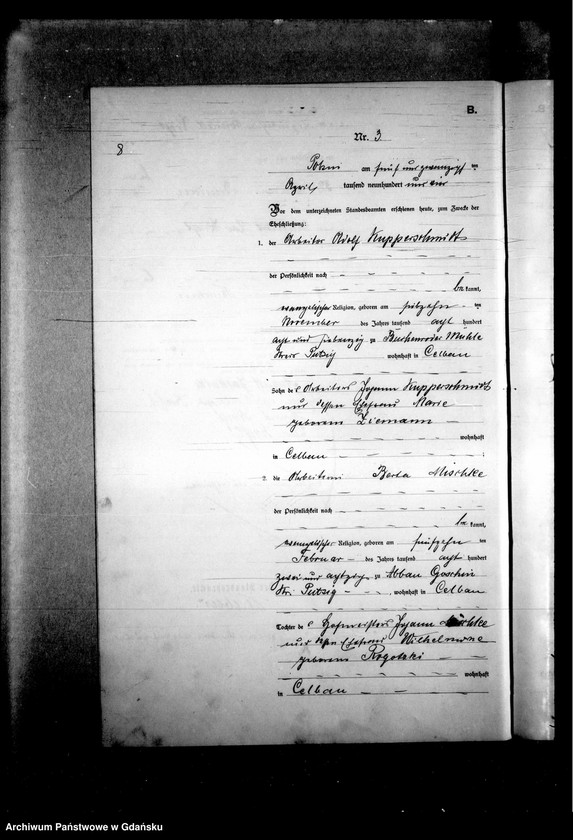 B.
8
Nr. 3
am fünf und zwanzigsten
April tausend neunhundert und vier
Vor dem unterzeichneten Standesbeamten erschienen heute, zum Zwecke der
Eheschließung:
1. der Arbeiter Adolf Kupperschmidt
der Persönlichkeit nach
be kannt,
evangelischer Religion, geboren am siebzehn ten
November des Jahres tausend acht hundert
acht und siebenzig zu Buchenroder Mühle
Kreis Putzig wohnhaft in Celbau
Sohn des Arbeiters Johann Kupperschmidt
und dessen Ehefrau Marie
geborene Ziemann
wohnhaft
in Celbau
2. die Arbeiterin Berta Mischke
der Persönlichkeit nach
be kannt,
evangelischer Religion, geboren am fünfzehn ten
Februar des Jahres tausend acht hundert
zwei und achtzig zu Abbau
Kr. Putzig , wohnhaft in Celbau
Tochter des Hofmeisters Johann Mischke
und dessen Ehefrau Wilhelmine
geborene
wohnhaft
in Celbau
Archiwum Państwowe w Gdańsku